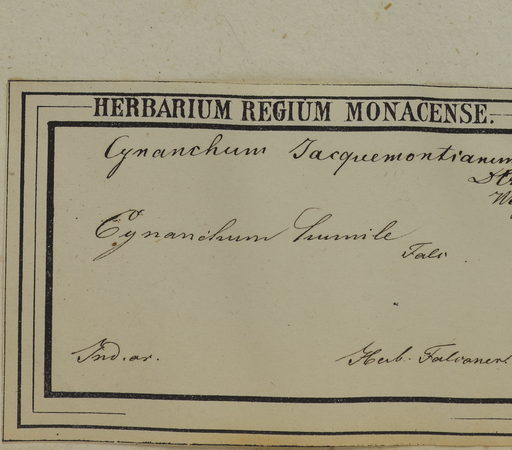 HERBARIUM REGIUM MONACENSE.
Cynanchum Jacquemontianum
Cynanchum humile
Falc.
Ind. or.
Herb. Falconer.